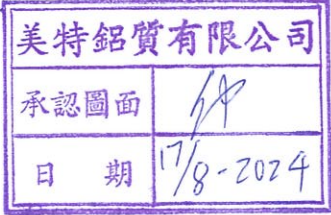 美特鋁質有限公司
承認圖面
日 期 17/8-2024